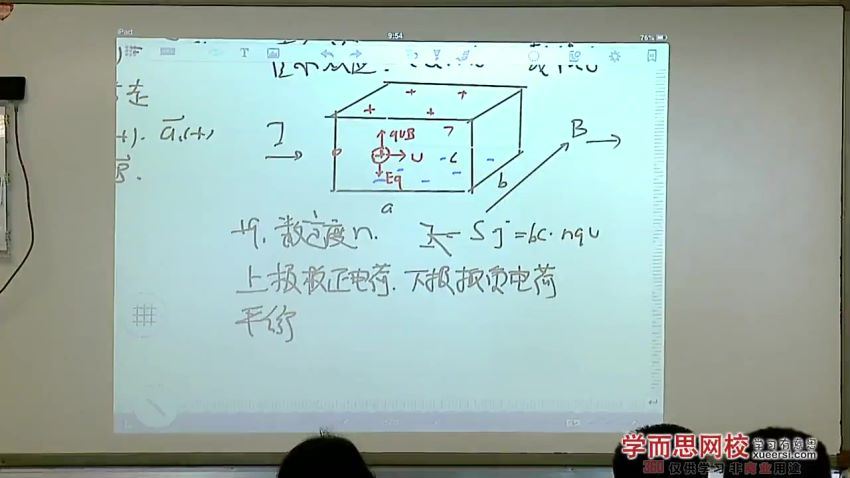 iPad
9:54
76%
T
a(+)
I
qvB
v
Eq
c
b
a
B
+q. 数密度n. I = Sj = bc·nqv
上极板正电荷. 下极板负电荷
平衡
学而思网校
学习有意思
xueersi.com
360 仅供学习 非商业用途